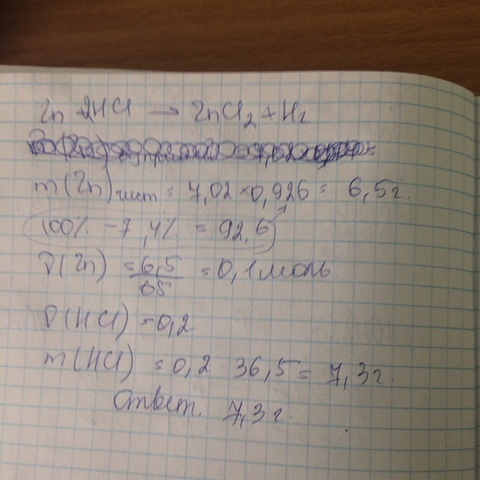 Zn + 2HCl → ZnCl₂ + H₂
m(Zn)чист = 7,02 × 0,926 = 6,5г.
100% - 7,4% = 92,6
ν(Zn) = 6,5/65 = 0,1 моль
ν(HCl) = 0,2
m(HCl) = 0,2 36,5 = 7,3г.
Ответ. 7,3г.